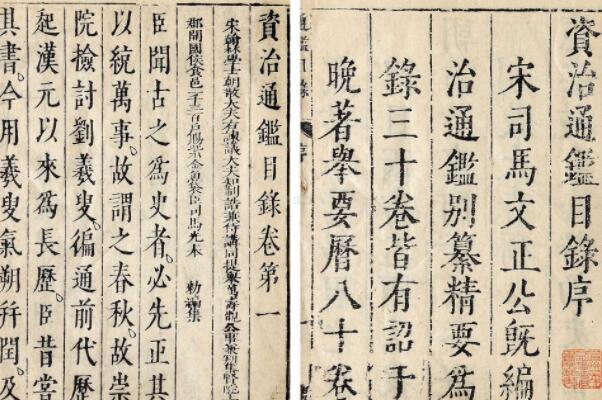 資治通鑑目錄序
宋司馬文正公旣編
治通鑑別纂精要爲
錄三十卷皆有詔于
晚著舉要曆八十卷
通鑑目錄 序
資治通鑑目錄卷第一
宋翰林學士朝散大夫右諫議大夫知制誥兼侍講同提舉萬壽觀公事兼判集賢院
郡開國侯食邑一千三百戶賜紫金魚袋臣司馬光奉 勅編集
臣聞古之爲史者。必先正其
以統萬事。故謂之春秋。故崇
院檢討劉羲叟。徧通前代歷
起漢元以來爲長歷。臣昔嘗
其書。今用羲叟氣朔幷閏。及